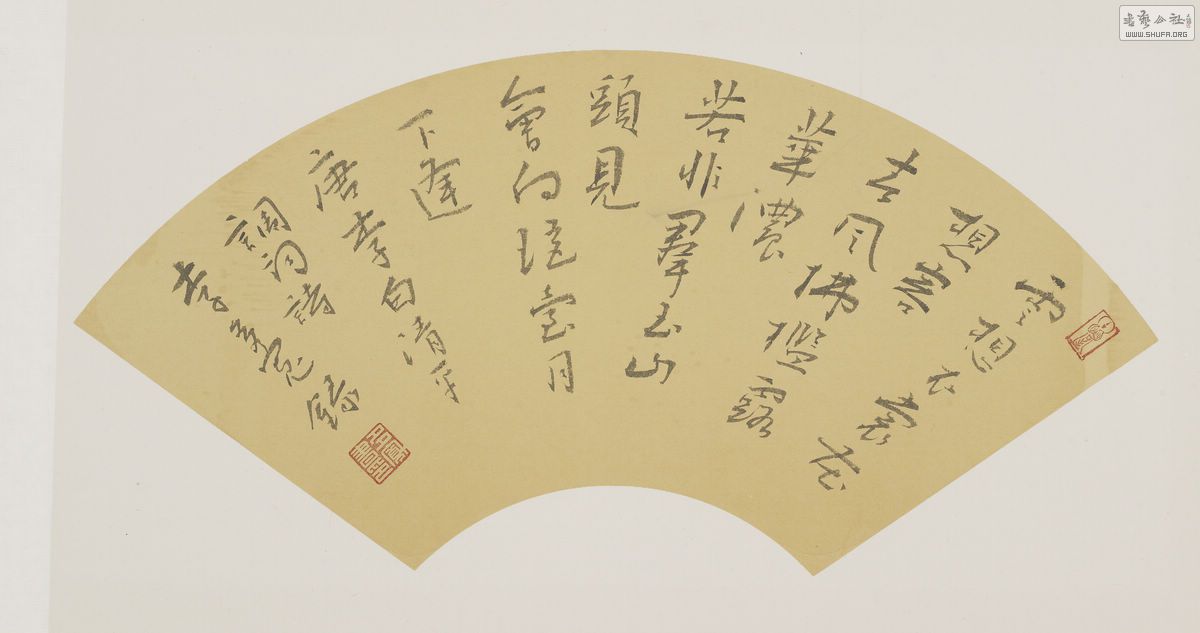 雲想衣裳花
想容
春風拂檻露
華濃
若非羣玉山
頭見
會向瑤臺月
下逢
唐李白清平
調詞詩
李
書藝公社
WWW.SHUFA.ORG